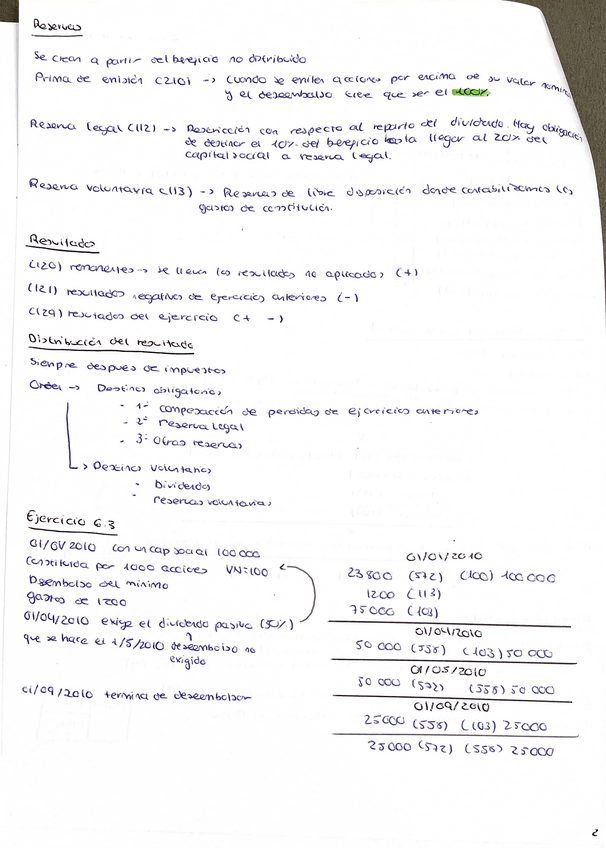 Reservas
Se crean a partir del beneficio no distribuido
Prima de emisión (210) -> Cuando se emiten acciones por encima de su valor nomin
y el desembolso tiene que ser el 100%.
Reserva legal (112) -> Restricción con respecto al reparto del dividendo. Hay obligación
de destinar el 10% del beneficio hasta llegar al 20% del
capital social a reserva legal.
Reserva voluntaria (113) -> Reservas de libre disposición donde contabilizamos los
gastos de constitución.
Resultados
(120) remanentes -> se llevan los resultados no aplicados (+)
(121) resultados negativos de ejercicios anteriores (-)
(129) resultados del ejercicio (+ -)
Distribución del resultado
Siempre despues de impuestos
Orden -> Destinos obligatorios
- 1º compesación de perdidas de ejercicios anteriores
- 2º Reserva Legal
- 3º Otras reservas
-> Destinos voluntarios
- Dividendos
- reservas voluntarias
Ejercicio 6.3
01/01/2010 con un cap social 100000
constituida por 1000 acciones VN=100
Dsembolso del mínimo
gastos de 1200
01/04/2010 exige el dividendo pasivo (50%)
que se hace el 1/5/2010 desembolso no
exigido
01/09/2010 termina de desembolsar
01/01/2010
23800 (572) (100) 100000
1200 (113)
75000 (103)
01/04/2010
50 000 (558) (103) 50 000
01/05/2010
50 000 (572) (558) 50 000
01/09/2010
25000 (558) (103) 25000
25000 (572) (558) 25000
2